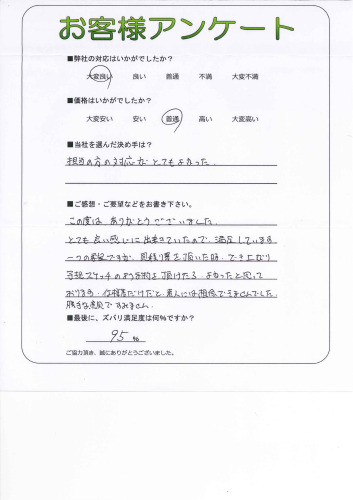 お客様アンケート
■弊社の対応はいかがでしたか?
大変良い 良い 普通 不満 大変不満
■価格はいかがでしたか?
大変安い 安い 普通 高い 大変高い
■当社を選んだ決め手は?
担当の方の対応がとてもよかった
■ご感想・ご要望などをお書き下さい。
この度は、ありがとうございました。
とても良い感じに出来ていたので、満足しています
一つの希望ですが、見積り等を頂いた時、でき上がり
予想スケッチの様な物を頂けたら、よかったと思って
おります。仕様書だけだと、素人には想像できませんでした。
勝手な意見ですみません
■最後に、ズバリ満足度は何%ですか?
95 %
ご協力頂き、誠にありがとうございました。